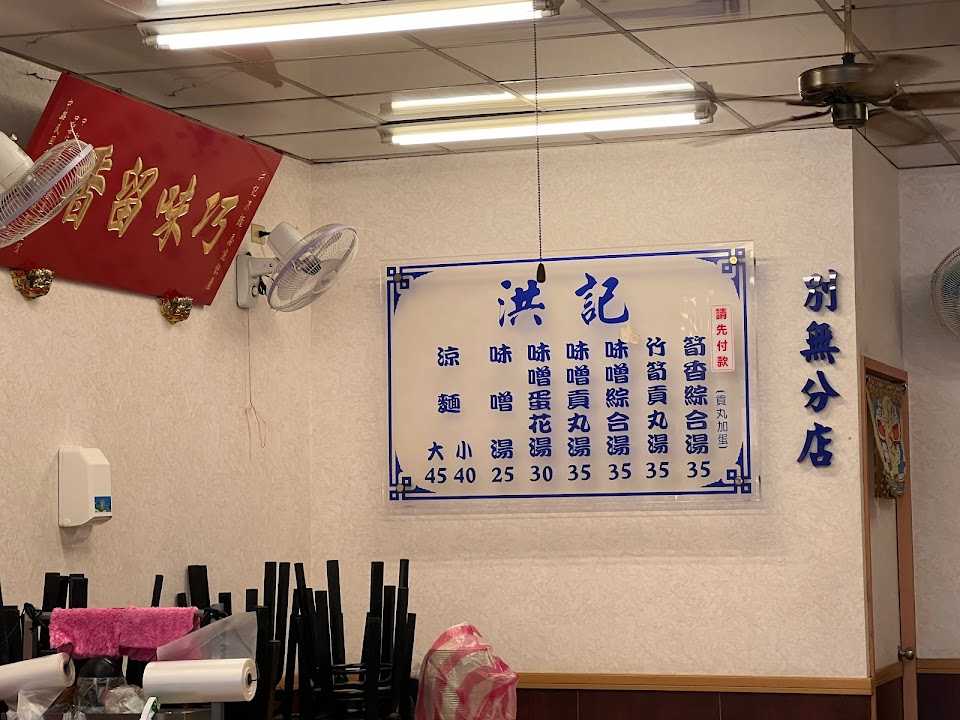 巧味留香
洪記
請先付款
筍香綜合湯 35
(貢丸加蛋)
竹筍貢丸湯 35
味噌綜合湯 35
味噌貢丸湯 35
味噌蛋花湯 30
味噌湯 25
涼麵
小 40
大 45
別無分店